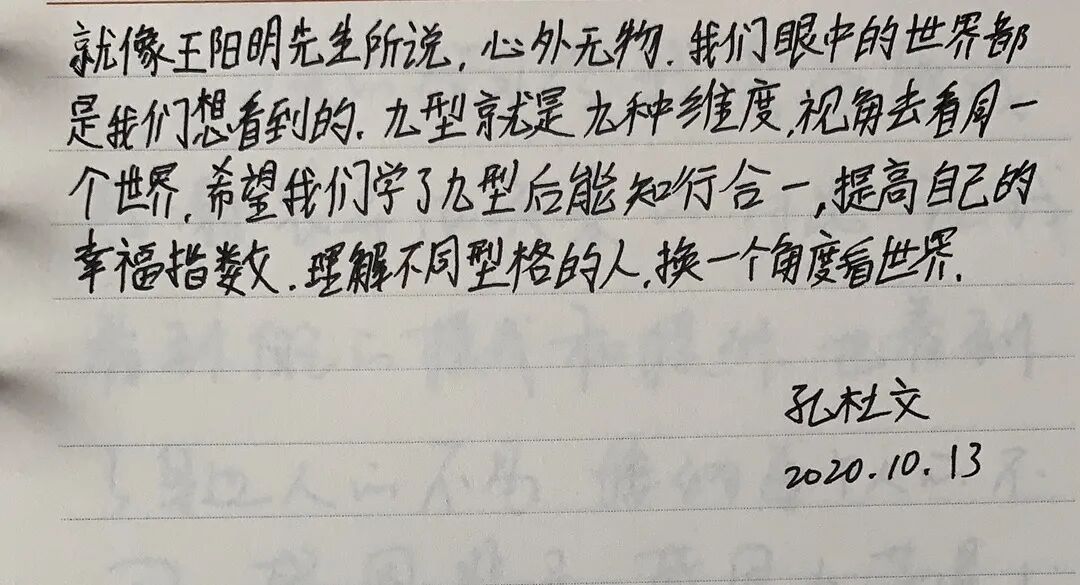 就像王阳明先生所说,心外无物.我们眼中的世界都
是我们想看到的.九型就是九种维度,视角去看同一
个世界.希望我们学了九型后能知行合一,提高自己的
幸福指数.理解不同型格的人,换一个角度看世界.
孔杜文
2020.10.13